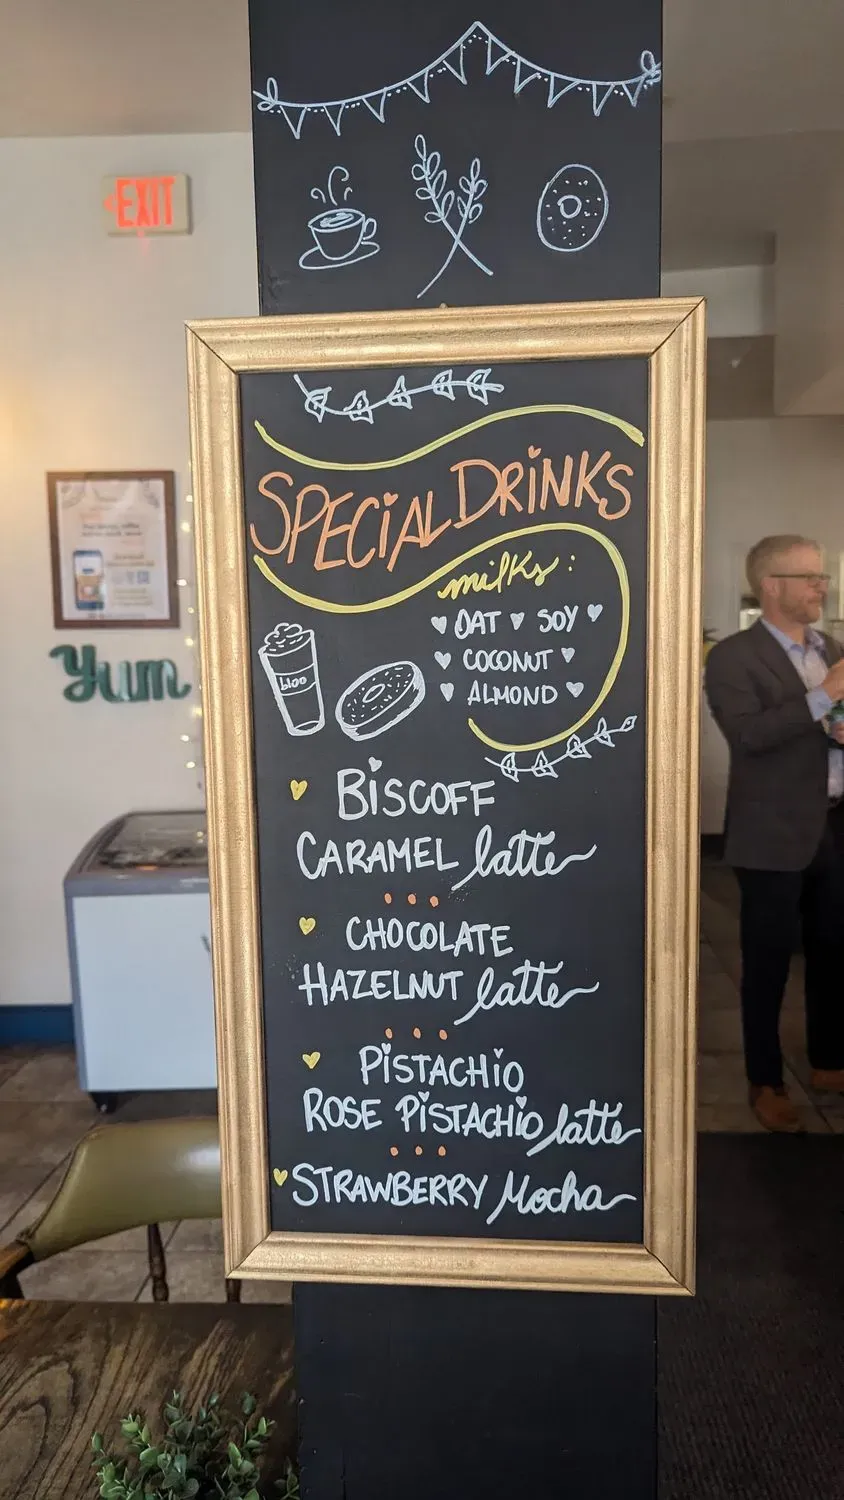 EXIT
SPECIAL DRINKS
milks:
OAT SOY
COCONUT
ALMOND
bloo
Yum
BISCOFF
CARAMEL latte
CHOCOLATE
HAZELNUT latte
PISTACHIO
ROSE PISTACHIO latte
STRAWBERRY Mocha